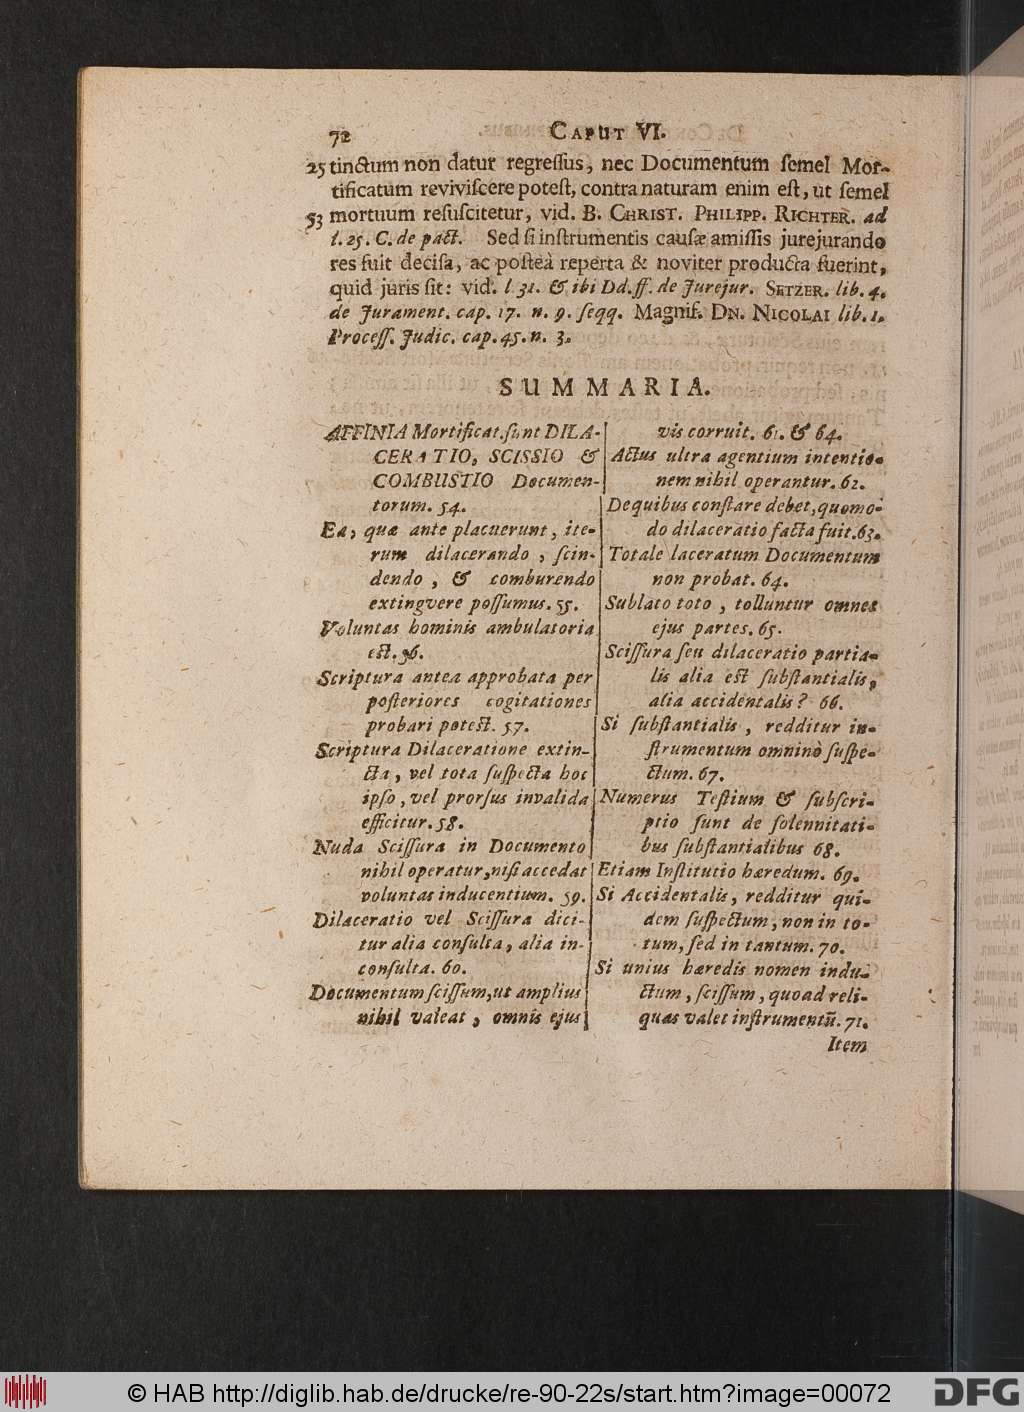 72
CAPUT VI.
25 tinctum non datur regressus, nec Documentum semel Mor-
tificatum reviviscere potest, contra naturam enim est, ut semel
53 mortuum resuscitetur, vid. B. CHRIST. PHILIPP. RICHTER. ad
l. 25. C. de pact. Sed si instrumentis causæ amissis jurejurando
res fuit decisa, ac posteà reperta & noviter producta fuerint,
quid juris sit: vid. l 31. & ibi Dd. ff. de Jurejur. SETZER. lib. 4.
de Jurament. cap. 17. n. 9. seqq. Magnif. DN. NICOLAI lib. 1.
Process. Judic. cap. 45. n. 3.
SUMMARIA.
AFFINIA Mortificat. sunt DILA-
CERATIO, SCISSIO &
COMBUSTIO Documen-
torum. 54.
Ea, quæ ante placuerunt, ite-
rum dilacerando, scin-
dendo, & comburendo
extingvere possumus. 55.
Voluntas hominis ambulatoria
est. 56.
Scriptura antea approbata per
posteriores cogitationes
probari potest. 57.
Scriptura Dilaceratione extin-
cta, vel tota suspecta hoc
ipso, vel prorsus invalida
efficitur. 58.
Nuda Scissura in Documento
nihil operatur, nisi accedat
voluntas inducentium. 59.
Dilaceratio vel Scissura dici-
tur alia consulta, alia in-
consulta. 60.
Documentum scissum, ut amplius
nihil valeat, omnis ejus
vis corruit. 61. & 64.
Actus ultra agentium intentio-
nem nihil operantur. 62.
De quibus constare debet, quomo-
do dilaceratio facta fuit. 63.
Totale laceratum Documentum
non probat. 64.
Sublato toto, tolluntur omnes
ejus partes. 65.
Scissura seu dilaceratio partia-
lis alia est substantialis,
alia accidentalis? 66.
Si substantialis, redditur in-
strumentum omninò suspe-
ctum. 67.
Numerus Testium & subscri-
ptio sunt de solennitati-
bus substantialibus 68.
Etiam Institutio hæredum. 69.
Si Accidentalis, redditur qui-
dem suspectum, non in to-
tum, sed in tantum. 70.
Si unius hæredis nomen indu-
ctum, scissum, quoad reli-
quas valet instrumentũ. 71.
Item
© HAB http://diglib.hab.de/drucke/re-90-22s/start.htm?image=00072
DFG